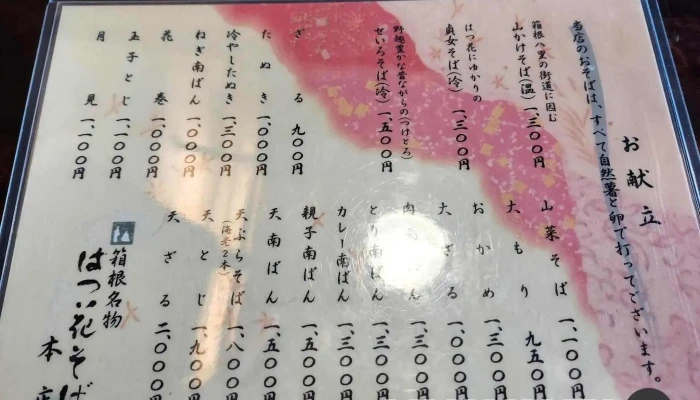 お献立
当店のおそばは、すべて自然薯と卵で打ってございます。
箱根八里の街道に因む
山かけそば(温) 一、三〇〇円
はつ花にゆかりの
貞女そば(冷) 一、三〇〇円
野趣豊かな昔ながらの(つけとろ)
せいろそば(冷) 一、五〇〇円
ざる 九〇〇円
たぬき 一、〇〇〇円
冷やしたぬき 一、三〇〇円
ねぎ南ばん 一、〇〇〇円
花巻 一、〇〇〇円
玉子とじ 一、一〇〇円
月見 一、一〇〇円
山菜そば 一、一〇〇円
大もり 九五〇円
おかめ 一、三〇〇円
大ざる 一、〇〇〇円
肉南ばん 一、三〇〇円
とり南ばん 一、三〇〇円
カレー南ばん 一、三〇〇円
親子南ばん 一、五〇〇円
天南ばん 一、五〇〇円
天ぷらそば 一、八〇〇円
(海老2本)
天とじ 一、九〇〇円
天ざる 二、〇〇〇円
箱根名物
はつ花そば
本店